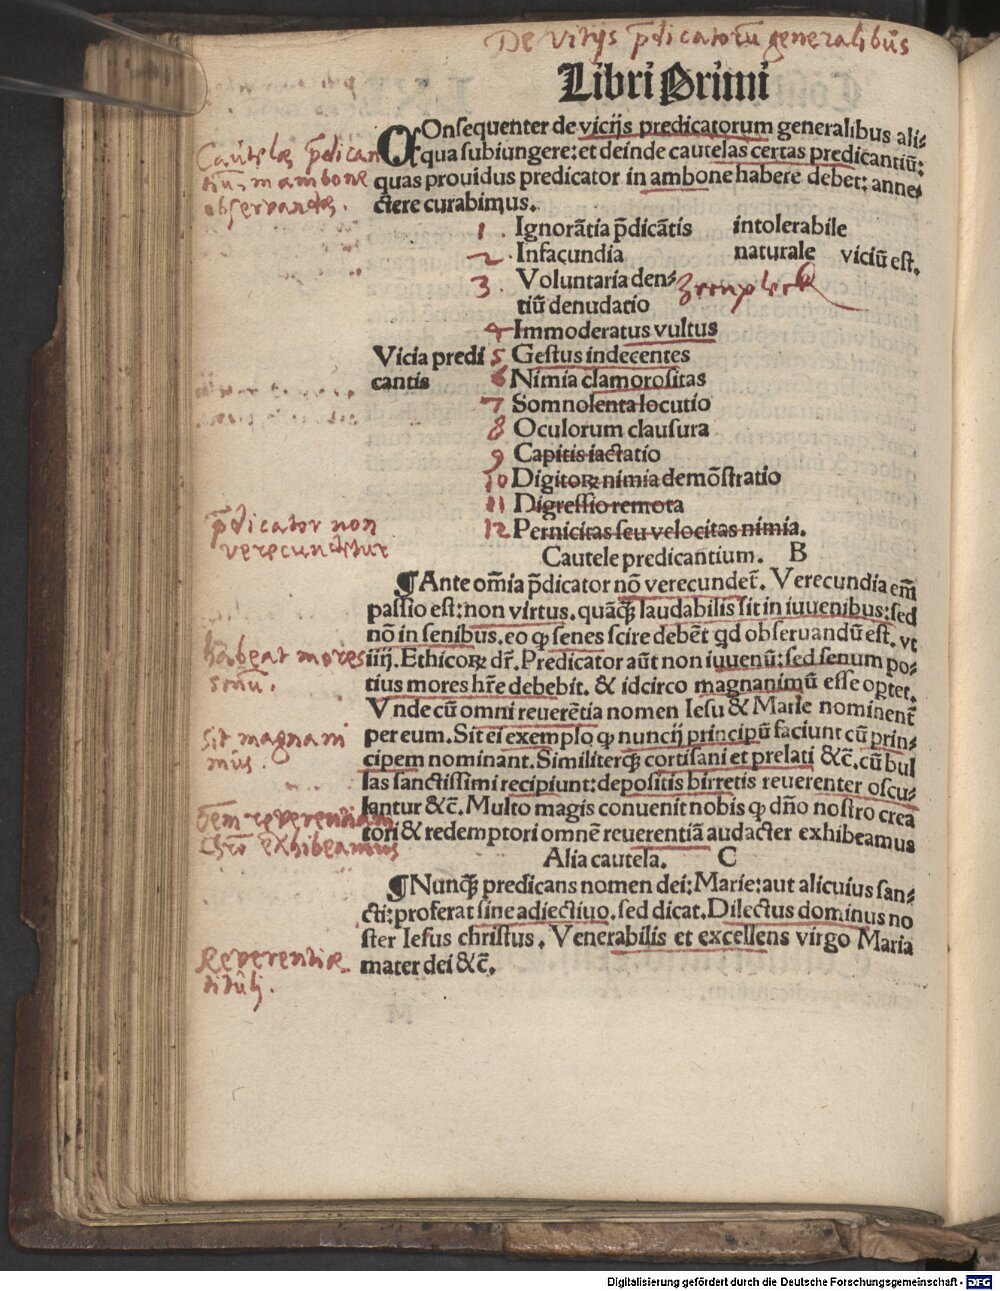 De vitijs p̄dicatorū generalibus
Libri Primi
COnsequenter de vicijs predicatorum generalibus ali⸗
qua subiungere: et deinde cautelas certas predicantiū:
quas prouidus predicator in ambone habere debet: anne⸗
ctere curabimus.
Cautelas p̄dican
tius in ambone
observandas.
1. Ignorātia p̄dicātis intolerabile
2. Infacundia naturale viciū est.
3. Voluntaria den⸗
tiū denudatio
4 Immoderatus vultus
Vicia predi 5 Gestus indecentes
cantis 6 Nimia clamorositas
7 Somnolenta locutio
8 Oculorum clausura
9 Capitis iactatio
10 Digitoꝝ nimia demōstratio
11 Digressio remota
12 Pernicitas seu velocitas nimia.
Cautele predicantium. B
p̄dicator non
verecundetur
¶ Ante om̄ia p̄dicator nō verecundet̄. Verecundia em̄
passio est: non virtus. quāqȝ laudabilis sit in iuuenibus: sed
nō in senibus. eo ꝙ senes scire debēt qd obseruandū est. vt
iiij. Ethicoꝝ dr̄. Predicator aūt non iuuenū: sed senum po⸗
tius mores hr̄e debebit. & idcirco magnanimū esse optet.
Vnde cū omni reuerētia nomen Iesu & Marie nominent̄
per eum. Sit ei exemplo ꝙ nuncij principū faciunt cū prin⸗
cipem nominant. Similiterqȝ cortisani et prelati &c̄. cū bul
las sanctissimi recipiunt: depositis birretis reuerenter oscu⸗
lantur &c̄. Multo magis conuenit nobis ꝙ dn̄o nostro crea
tori & redemptori omnē reuerentiā audacter exhibeamus
habeat mores
senū.
sit magnani
mus.
Oēm reverentiam
Chr̄o exhibeamus
Alia cautela. C
¶ Nunqȝ predicans nomen dei: Marie: aut alicuius san⸗
cti: proferat sine adiectiuo. sed dicat. Dilectus dominus no
ster Iesus christus. Venerabilis et excellens virgo Maria
mater dei &c̄.
Reverentiæ
tituli.
Digitalisierung gefördert durch die Deutsche Forschungsgemeinschaft - DFG